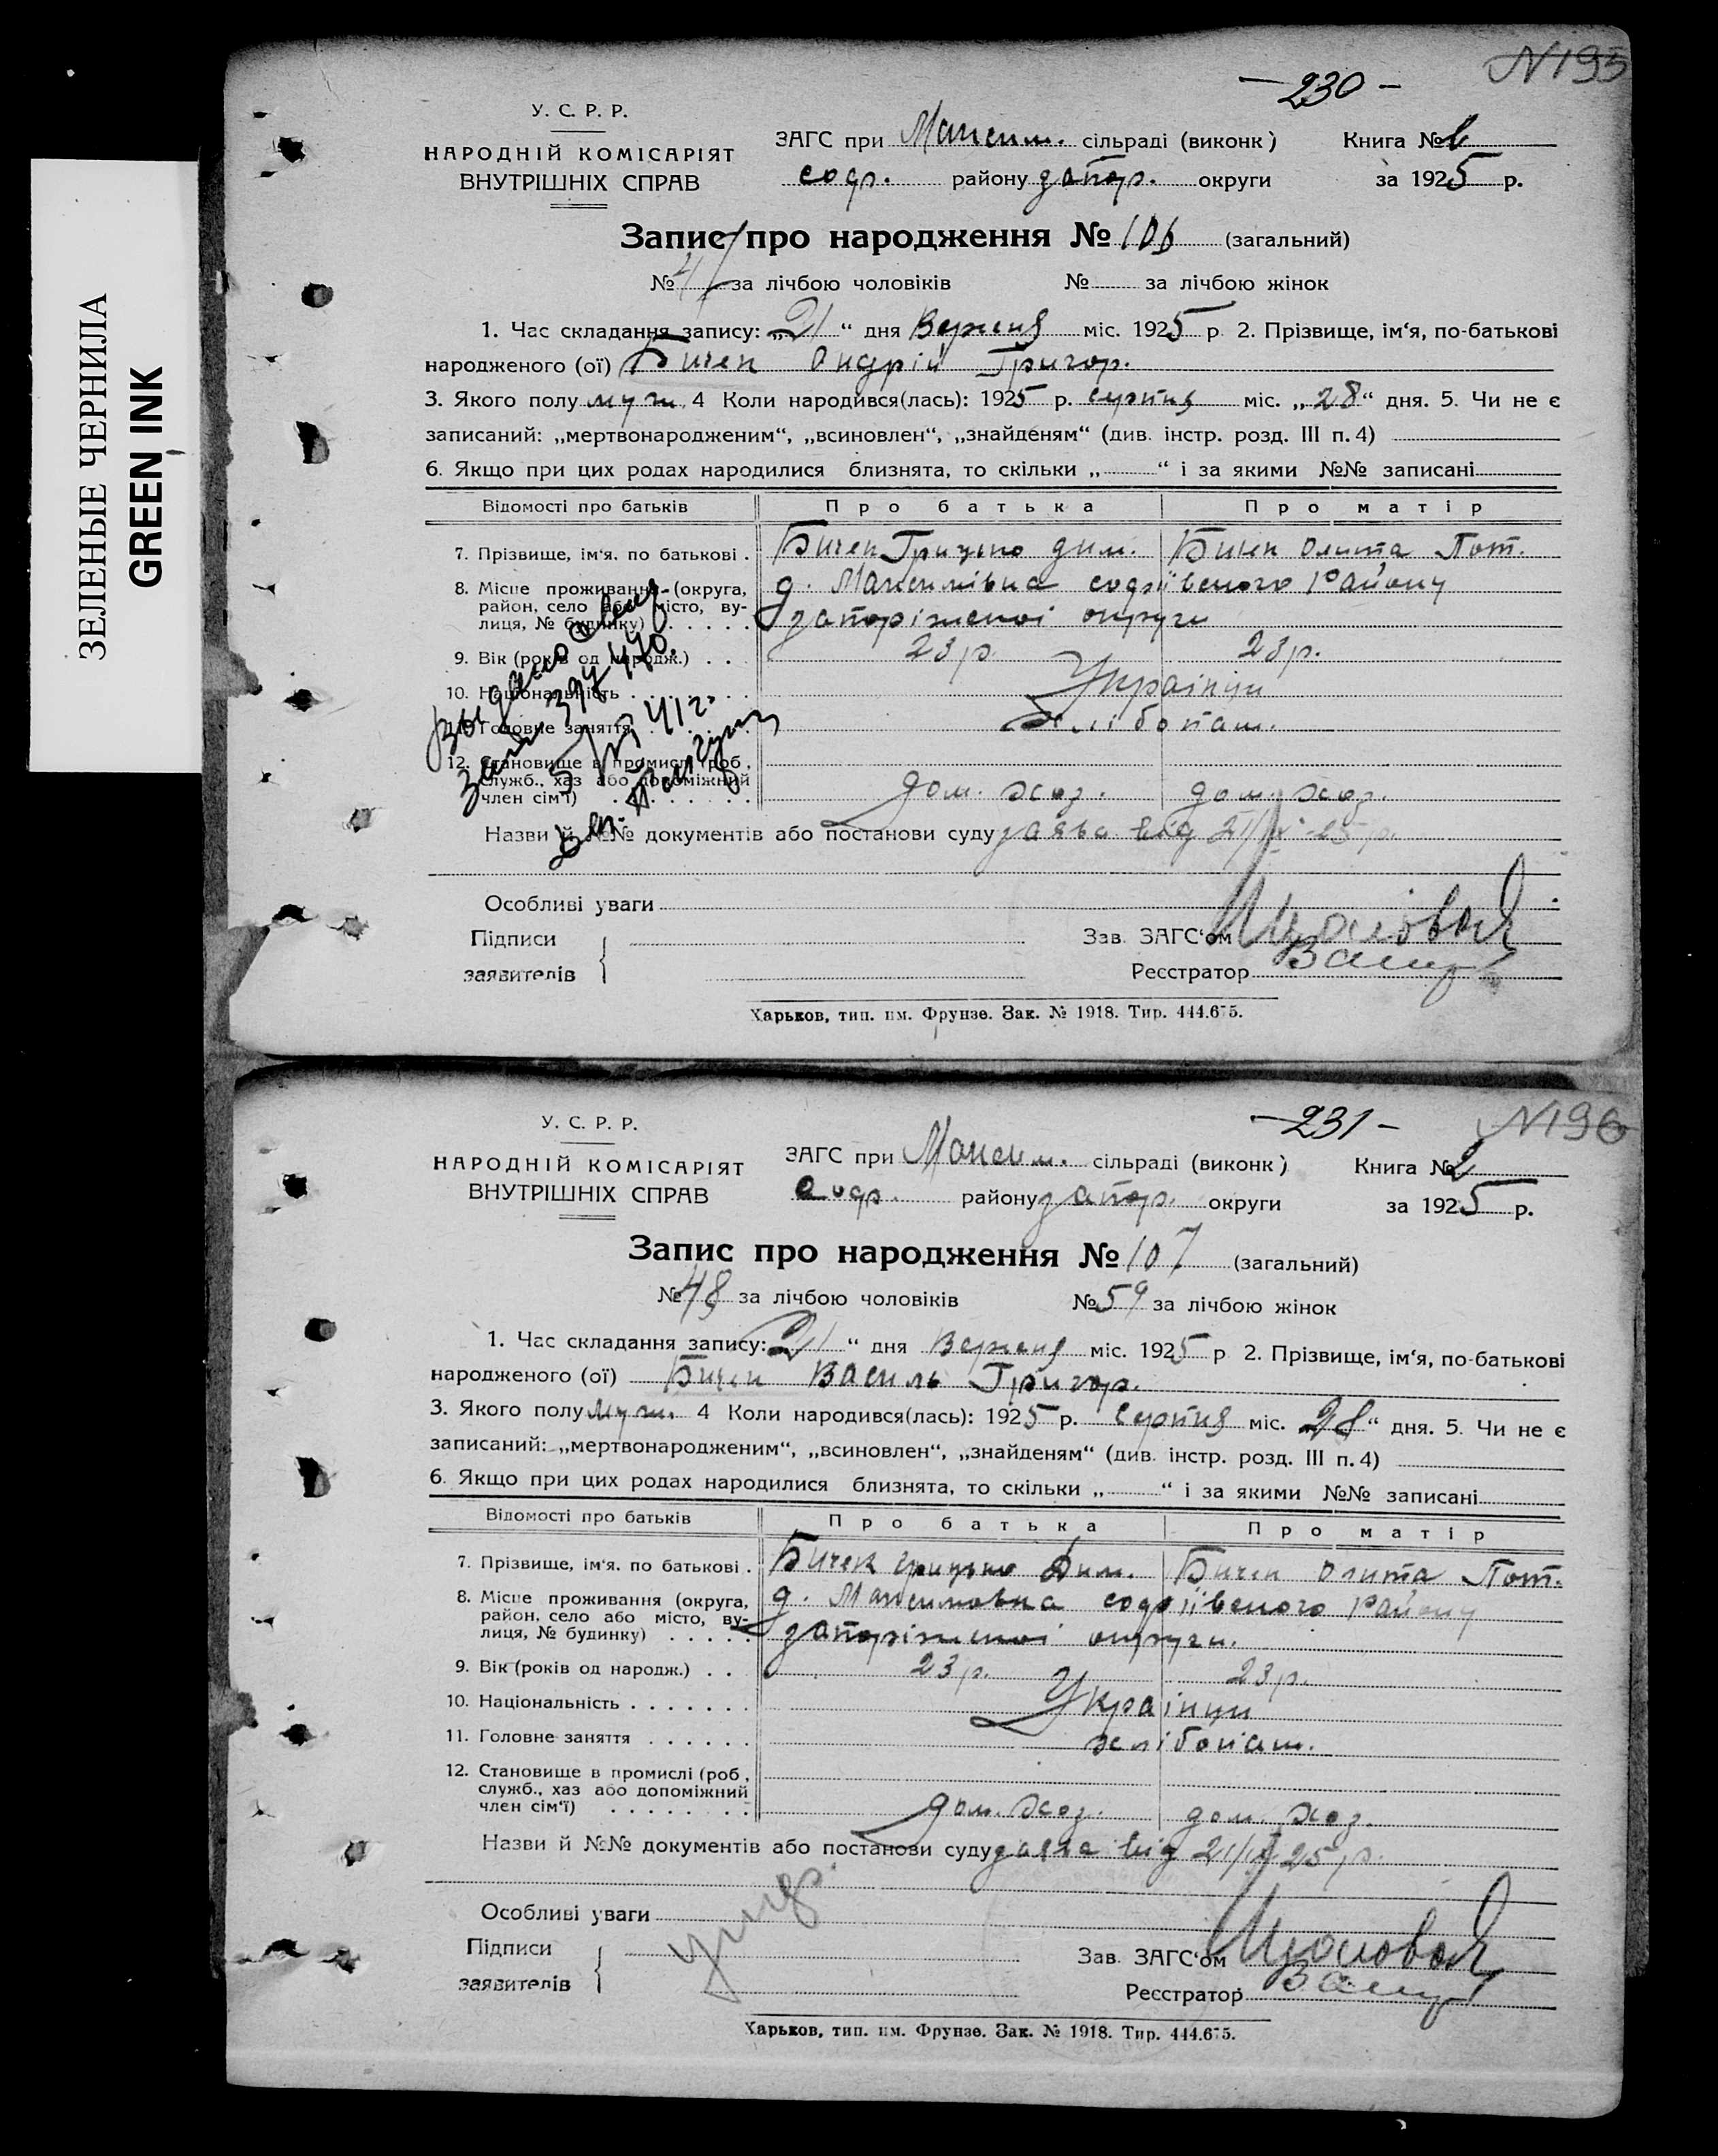 ЗЕЛЕНЫЕ ЧЕРНИЛА
GREEN INK
N195
—230—
У. С. Р. Р.
НАРОДНІЙ КОМІСАРІЯТ
ВНУТРІШНІХ СПРАВ
ЗАГС при Максим. сільраді (виконк) Книга №
софр. району запор. округи за 1925 р.
Запис про народження № 106 (загальний)
№ 47 за лічбою чоловіків № за лічбою жінок
1. Час складання запису: „21“ дня Вересня міс. 1925 р 2. Прізвище, ім‘я, по-батькові
народженого (ої) Бичек Андрій Григор.
3. Якого полу муж. 4 Коли народився(лась): 1925 р. серпня міс. „28“ дня. 5. Чи не є
записаний: „мертвонародженим“, „всиновлен“, „знайденям“ (див. інстр. розд. III п. 4)
6. Якщо при цих родах народилися близнята, то скільки „ “ і за якими №№ записані
Відомості про батьків Про батька Про матір
7. Прізвище, ім‘я. по батькові . Бичек Грицько дим. Бичек Олита Пот.
8. Місце проживання (округа, район, село або місто, вулиця, № будинку) д. Максимівка софіївського Району
запоріжської округи
9. Вік (років од народж.) . . 23 р. 23 р.
10. Національність Українци
11. Головне заняття хлібопаш.
12. Становище в промислі (роб, служб., хаз або допоміжний член сім‘ї) дом. хоз. дом. хоз.
Назви й №№ документів або постанови суду заява від 21/IX-25 р.
Особливі уваги
Підписи
заявителів
Зав. ЗАГС‘ом
Реєстратор
Харьков, тип. им. Фрунзе. Зак. № 1918. Тир. 444.675.
N196
—231—
У. С. Р. Р.
НАРОДНІЙ КОМІСАРІЯТ
ВНУТРІШНІХ СПРАВ
ЗАГС при Максим. сільраді (виконк) Книга № 2
софр. району запор. округи за 1925 р.
Запис про народження № 107 (загальний)
№ 48 за лічбою чоловіків № 59 за лічбою жінок
1. Час складання запису: 21 “ дня Вересня міс. 1925 р 2. Прізвище, ім‘я, по-батькові
народженого (ої) Бичек Василь Григор.
3. Якого полу муж. 4 Коли народився(лась): 1925 р. Серпня міс. 28 “ дня. 5. Чи не є
записаний: „мертвонародженим“, „всиновлен“, „знайденям“ (див. інстр. розд. III п. 4)
6. Якщо при цих родах народилися близнята, то скільки „ “ і за якими №№ записані
Відомості про батьків Про батька Про матір
7. Прізвище, ім‘я. по батькові . Бичек грицько Дим. Бичек Олита Пот.
8. Місце проживання (округа, район, село або місто, вулиця, № будинку) д. Максимовка софіївського Району
запоріжської округи.
9. Вік (років од народж.) . . 23 р. 23 р.
10. Національність Українци
11. Головне заняття хлібопаш.
12. Становище в промислі (роб, служб., хаз або допоміжний член сім‘ї) дом. хоз. дом. хоз.
Назви й №№ документів або постанови суду заява від 21/IX 25 р.
Особливі уваги
Підписи
заявителів
Зав. ЗАГС‘ом
Реєстратор
Харьков, тип. им. Фрунзе. Зак. № 1918. Тир. 444.675.